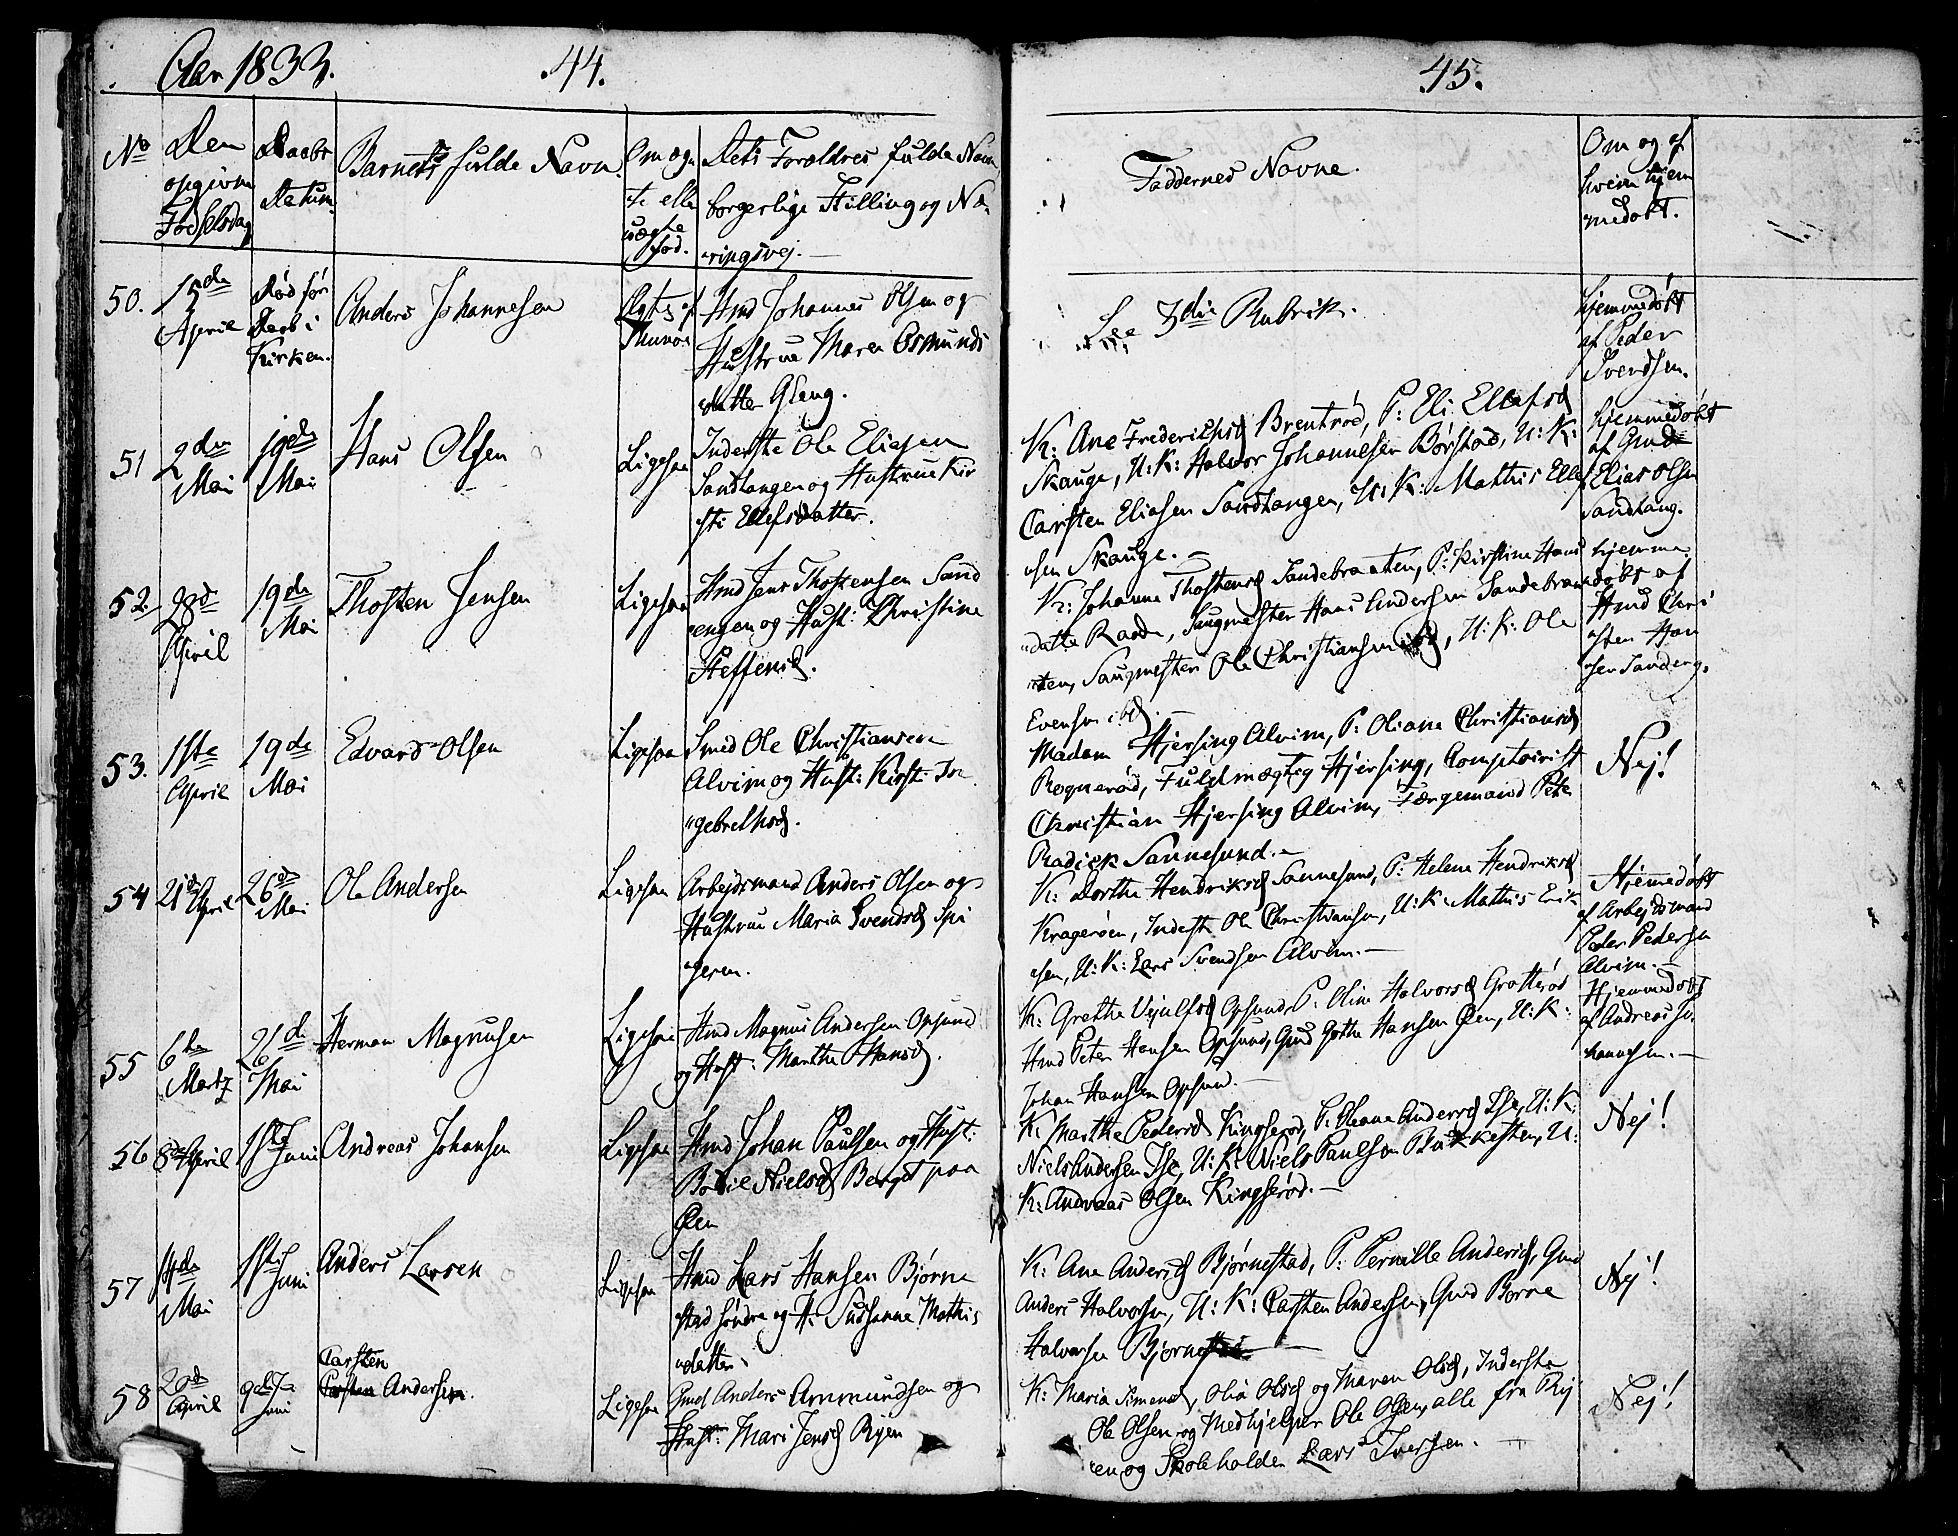 Aar 1833. 44. 45.
No Den opgivne Fødselsdag
Daabs Datum.
Barnets fulde Navn.
Om ægte eller uægte fød.
Dets Forældres fulde Navn
borgerlige Stilling og Næ-
ringsvej. —
Faddernes Navne.
Om og af
hvem hjem
medøbt.
50. 15de April
Død før Daab i Kirken.
Anders Johannesen
Hmd Johannes Olsen og
Hustrue Maren Osmunds
datter Gleng.
See 3die Rubrik.
hjemmedøbt
af Peder
Svendsen.
51 2den Mai
19de Mai
Hans Olsen
Ligesaa
Inderste Ole Eliasen
Sandtangen og Hustrue Kir
sti Ellefsdatter.
K: Ane Frederichsd Brentrød, P: Eli Ellefsd
Skauge, U: K: Halvor Johannesen Børstad, U: K:
Carsten Eliasen Sandtangen, U: K: Mathis Ellef
sen Skauge. —
hjemmedøbt
af Gmd
Elias Olsen
Sandtang.
52. 28d April
19de Mai
Thosten Jensen
Ligesaa
Hmd Jens Thostensen Sand
engen og Hust: Christine
Steffensd.
K: Johanne Thostensd Sandebraaten, P: Kirstine Hans
datter Raade, Saugmester Hans Andersen Sandebraa
ten, Saugmester Ole Christiansen ibd, U: K: Ole
Evensen ibd. —
hjemme
døbt af
Hmd Chri
sten Han
sen Sandeng.
53. 1ste April
19de Mai
Edvard Olsen
Ligesaa
Smed Ole Christiansen
Alvim og Hust: Kirsti In
gebrethsd.
Madam Hjersing Alvim, P: Oliane Christiansd
Rognerød, Fuldmægtig Hjersing, Comptoirist
Christian Hjersing Alvim, Færgemand Peter
Radick Sannesund. —
Nej!
54 21de April
26d Mai
Ole Andersen
Ligesaa
Arbejdsmand Anders Olsen og
Hustrue Maria Svendsd Spi
geren.
K: Dorthe Hendriksd Sannesund, P: Helene Hendriksd
Kragerøen, Inderst Ole Christiansen, U: K: Mathis Erik
sen, U: K: Lars Svendsen Alvim. —
Hjemmedøbt
af Arbejdsmand
Peder Pedersen
Alvim. —
55 6de Martz
26d Mai
Herman Magnusen
Ligesaa
Hmd Magnus Andersen Opsund
og Hust: Marthe Hansd.
K: Grethe Opsund, P: Oline Halvorsd Grotterød
Hmd Peter Hansen Opsund, Gmd Gothe Hansen Øen, U: K:
Johan Hansen Opsund. —
Hjemmedøbt
af Andreas Jo
hannesen. —
56 8de April
1ste Juni
Andreas Johansen
Ligesaa
Hmd Johan Paulsen og Hust:
Bodil Nielsd Berget paa
Øen
K: Marthe Pedersd Kingserød, P: Oleane Andersd Ise, U: K:
Niels Andersen Ise, U: K: Niels Paulsen Bakkesten, U:
K: Andreas Olsen Kingserød. —
Nej!
57 14de Mai
1ste Juni
Anders Larsen
Ligesaa
Hmd Lars Hansen Bjørne
stad søndre og H: Susanne Mathis
datter.
K: Ane Andersd Bjørnestad, P: Pernille Andersd, Gmd
Anders Halvorsen, U: K: Carsten Andersen, Gmd Borne
Halvorsen Bjørnestad —
Nej!
58 20d April
9de Juni
Carsten
Carsten Andersen.
Ligesaa
Gmd Anders Ammundsen og
Hust: Mari Jensd Ryen
K: Maria Simensd, Olia Olsd og Maren Olsd, Inderste
Ole Olsen og Medhjelper Ole Olsen, alle fra Ry
en og Skoleholder Lars Iversen. —
Nej!